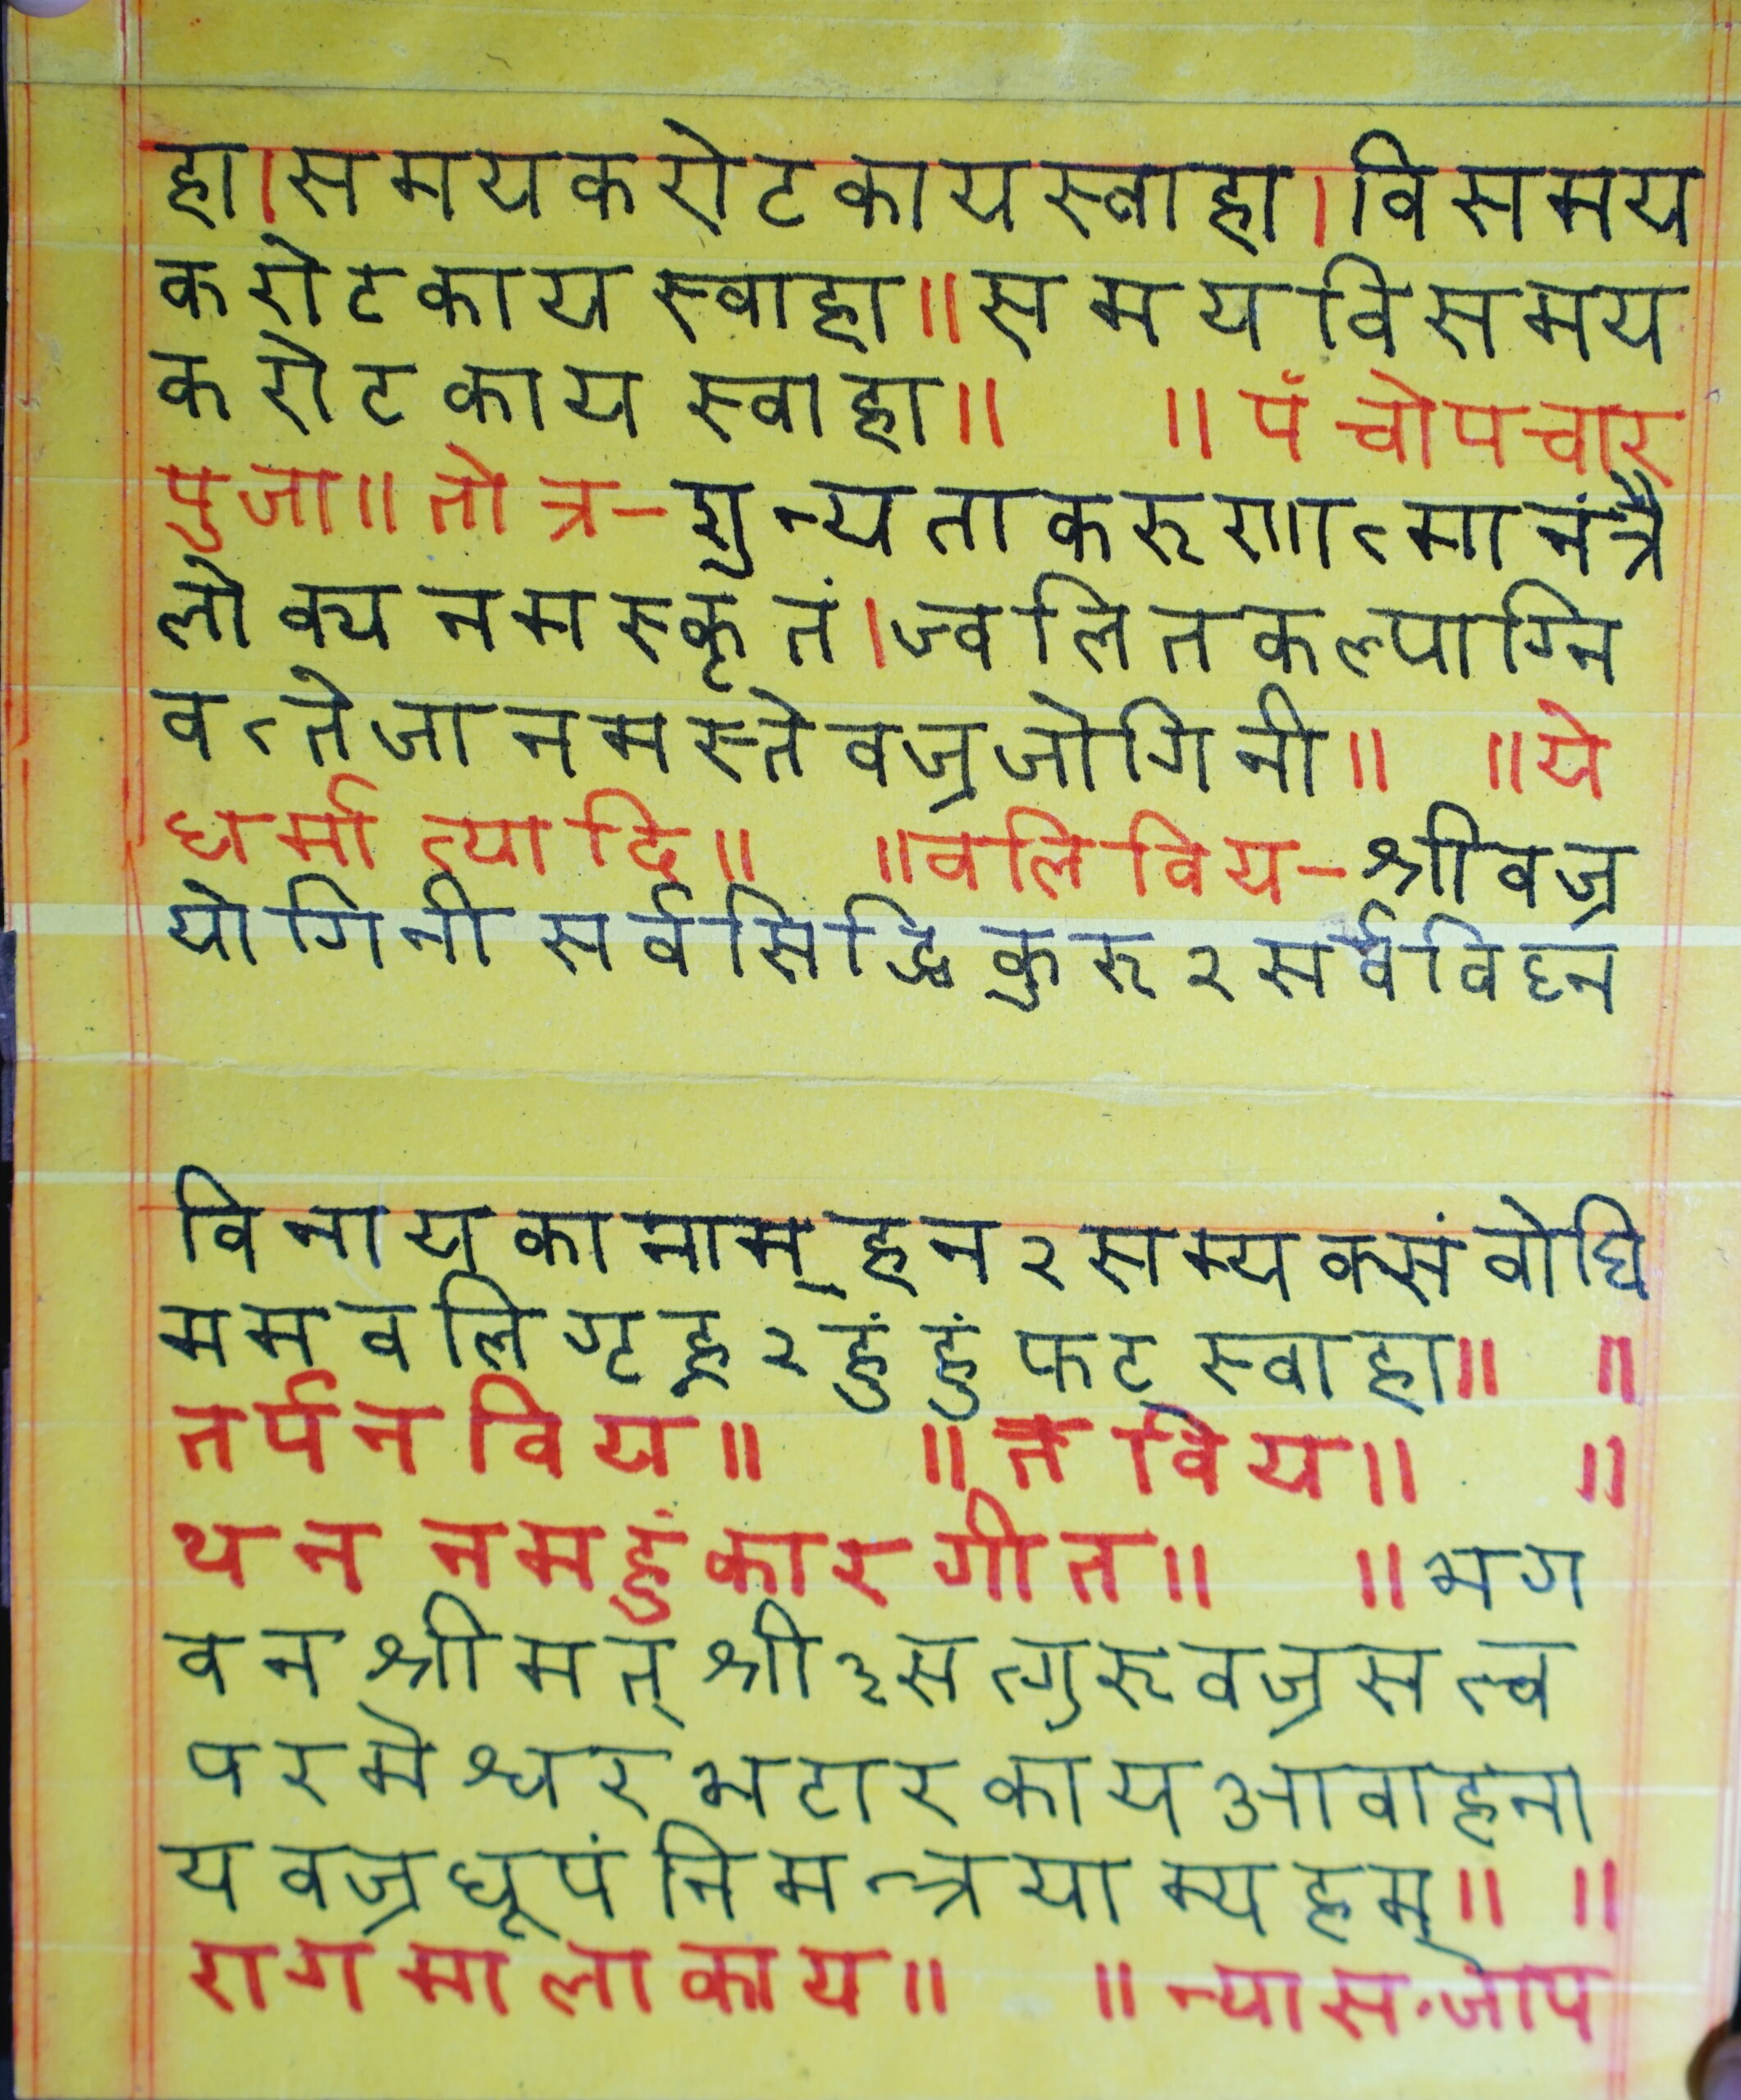 हा।समयकरोटकायस्वाहा।विसमय
करोटकाय स्वाहा॥समयविसमय
करोटकाय स्वाहा॥ ॥पंचोपचार
पुजा॥तोत्र-शुन्यताकरुणात्मानंत्रै
लोक्यनमस्कृतं।ज्वलितकल्पाग्नि
वत्तेजानमस्तेवज्रजोगिनी॥ ॥ये
धर्मा त्यादि॥ ॥वलिविय-श्रीवज्र
योगिनी सर्वसिद्धिकुरु२सर्वविघ्न
विनायकानाम्हन२सम्यक्संवोधि
ममवलिगृह्न२हुंहुंफट्स्वाहा॥ ॥
तर्पनविय॥ ॥तविय॥ ॥
थन नमहुंकारगीत॥ ॥भग
वनश्रीमत्श्री३सत्गुरुवज्रसत्व
परमेश्वरभटारकायआवाहना
यवज्रधूपंनिमन्त्रयाम्यहम्॥ ॥
रागमालाकाय॥ ॥न्यास.जाप